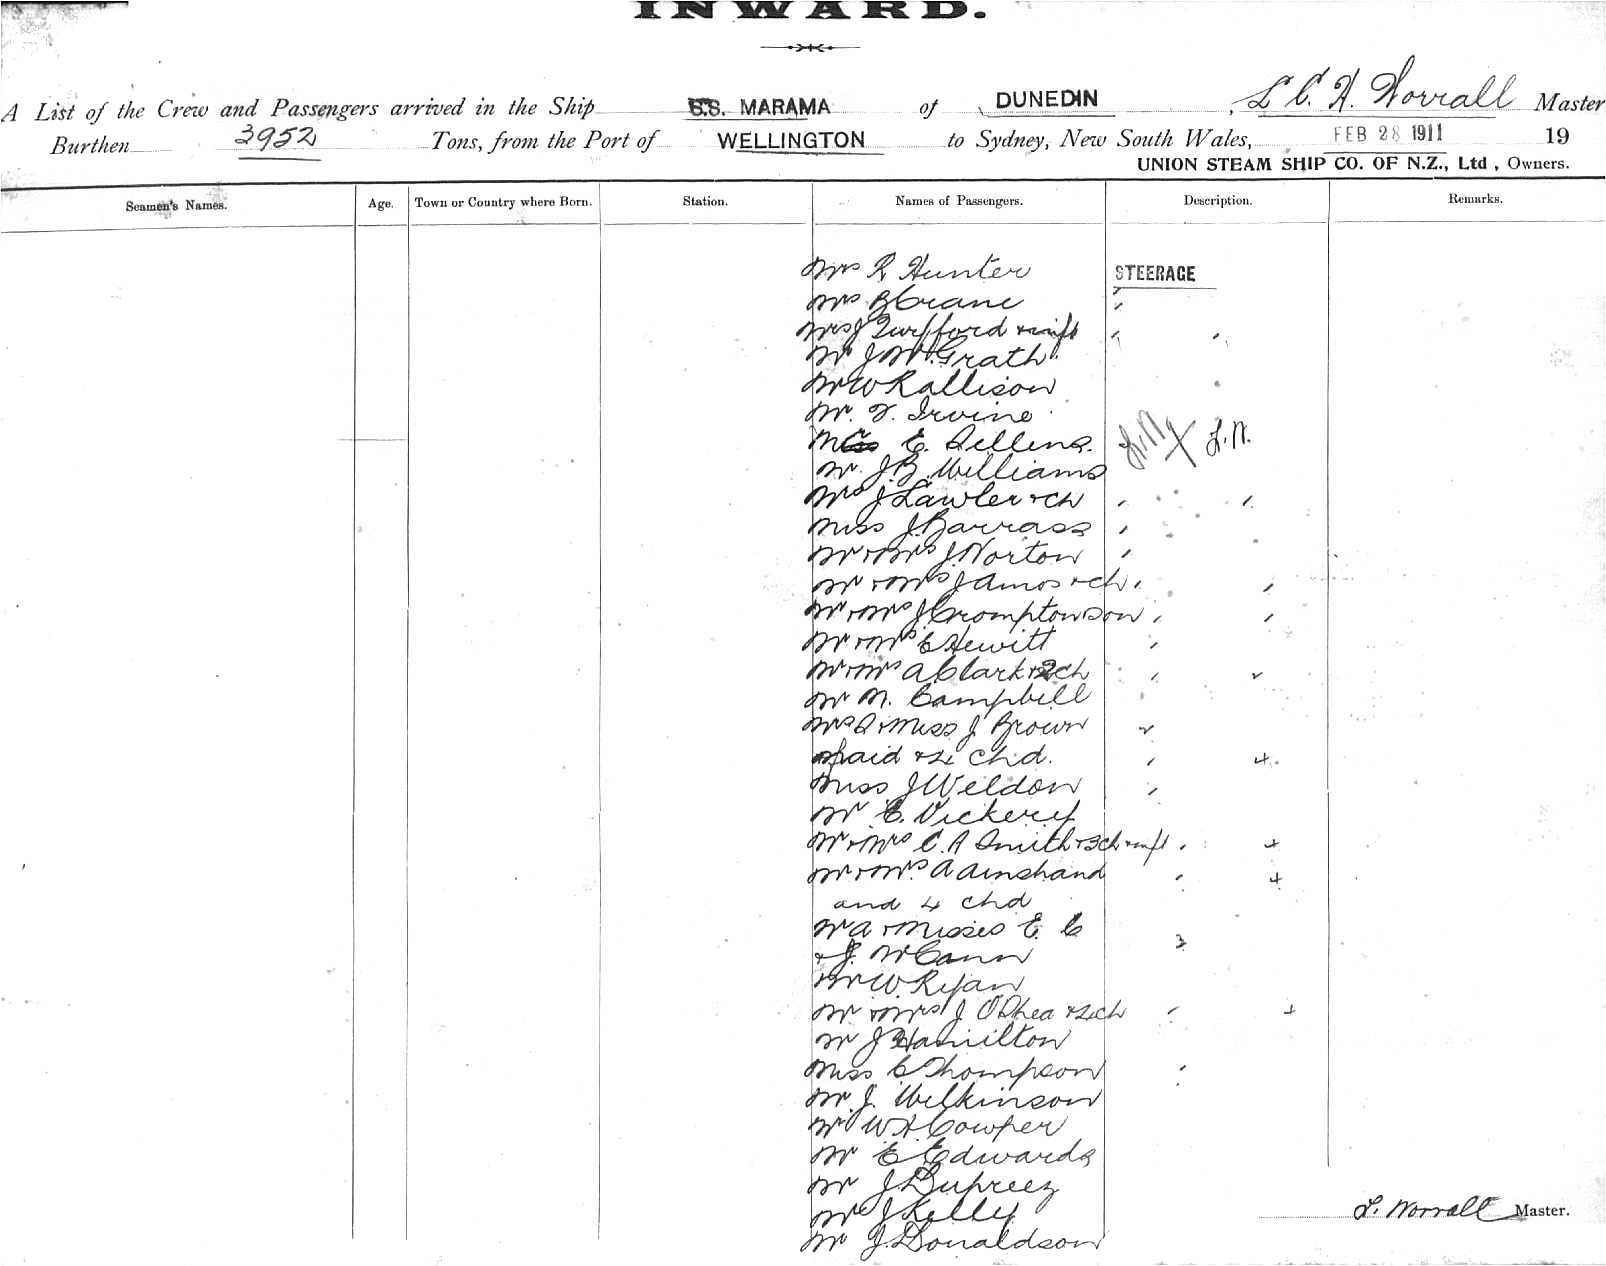 INWARD.
A List of the Crew and Passengers arrived in the Ship S.S. MARAMA of DUNEDIN, L C. H. Worrall Master
Burthen 3952 Tons, from the Port of WELLINGTON to Sydney, New South Wales, FEB 28 1911 19
UNION STEAM SHIP CO. OF N.Z., Ltd, Owners.
Seamen's Names. Age. Town or Country where Born. Station. Names of Passengers. Description. Remarks.
Mrs R Hunter STEERAGE
Mrs B Crane
Mrs J & inft
Mr J McGrath
Mr W Rallison
Mr. F. Irvine
E. L.N. L.N.
Mr. J B Williams
Mrs J Lawler & ch
Miss J Barrass
Mr & Mrs J Norton
Mr & Mrs J Amos & ch
Mr & Mrs J Crompton son
Mr & Mrs E Hewitt
Mr & Mrs A Clark & 2 ch
Mr M. Campbell
Mrs & Miss J Brown
maid & 4 chd. 4
Miss J Weldon
Mr E. Vickery
Mr & Mrs C. A Smith & 3 ch & inft 4
Mr & Mrs A 4
and 4 chd
Mr A & Misses E. C 3
& J. McCann
Mr W. Ryan
Mr & Mrs J O'Shea & 4 ch 4
Mr J Hamilton
Miss C Thompson
Mr. J. Wilkinson
Mr W H Cowper
Mr E Edwards
Mr J Dupreez
J Kelly
Mr J. Donaldson
L. Worrall Master.